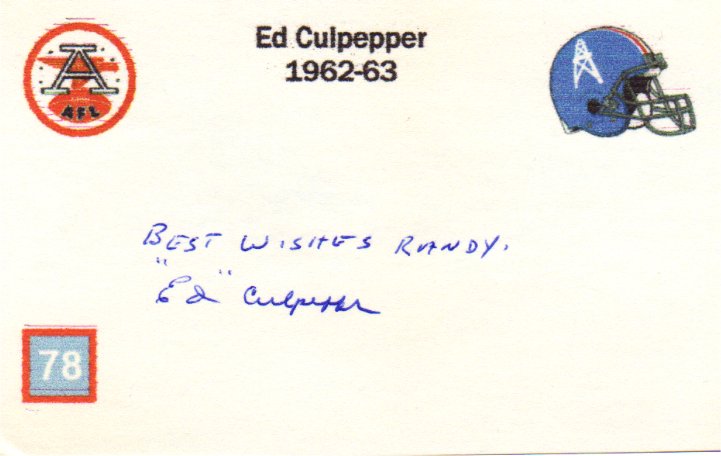 Ed Culpepper
1962-63
A
AFL
BEST WISHES RANDY.
"Ed" Culpepper
78